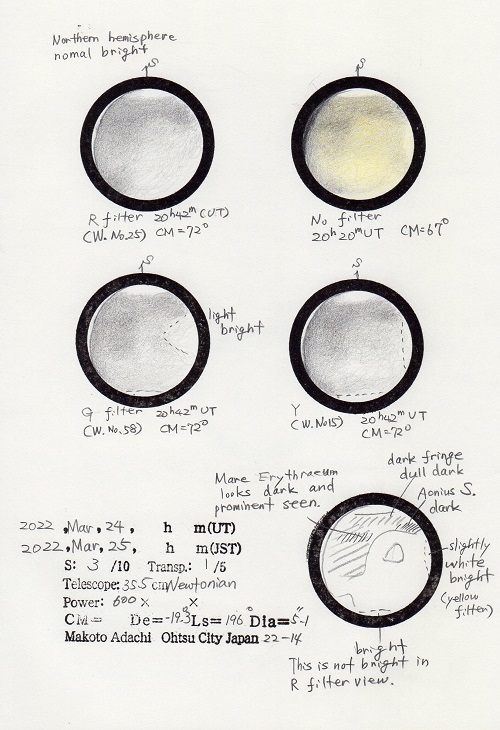 Northern hemisphere
nomal bright
S
R filter 20h42m(UT)
(W.No.25) CM=72°
S
No filter
20h20mUT CM=67°
S
light
bright
G filter 20h42mUT
(W.No.58) CM=72°
S
Y 20h42mUT
(W.No15) CM=72°
Mare Erythraeum
looks dark and
prominent seen.
dark fringe
dull dark
Aonius S.
dark
slightly
white
bright
(yellow
filter)
bright
This is not bright in
R filter view.
2022 ,Mar, 24 , h m(UT)
2022 ,Mar, 25 , h m(JST)
S: 3 /10 Transp.: 1 /5
Telescope: 355 cm Newtonian
Power: 600 × ×
CM= De=-19.3° Ls= 196° Dia=5"-1
Makoto Adachi Ohtsu City Japan 22-14